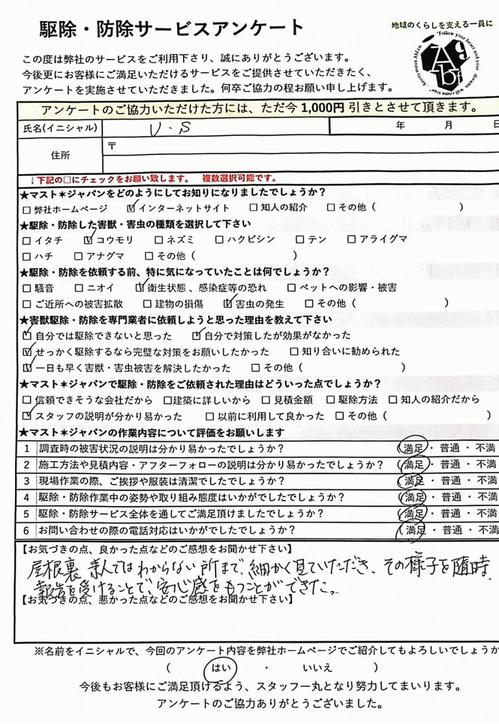 駆除・防除サービスアンケート
地域のくらしを支える一員に
この度は弊社のサービスをご利用下さり、誠にありがとうございます。
今後更にお客様にご満足いただけるサービスをご提供させていただきたく、
アンケートを実施させていただきました。何卒ご協力の程お願い申し上げます。
アンケートのご協力いただけた方には、ただ今1,000円引きとさせて頂きます。
氏名(イニシャル) U.S 年 月 日
住所 〒
↓下記の□にチェックをお願い致します。 複数選択可能です。
★マスト＊ジャパンをどのようにしてお知りになりましたでしょうか?
□弊社ホームページ ☑インターネットサイト □知人の紹介 □その他( )
★駆除・防除した害獣・害虫の種類を選択して下さい
□イタチ ☑コウモリ □ネズミ □ハクビシン □テン □アライグマ
□ハチ □アナグマ □その他( )
★駆除・防除を依頼する前、特に気になっていたことは何でしょうか?
□騒音 □ニオイ ☑衛生状態、感染症等の恐れ □ペットへの影響・被害
□ご近所への被害拡散 □建物の損傷 ☑害虫の発生 □その他( )
★害獣駆除・防除を専門業者に依頼しようと思った理由を教えて下さい
☑自分では駆除できないと思った ☑自分で対策したが効果がなかった
☑せっかく駆除するなら完璧な対策をお願いしたかった □知り合いに勧められた
☑一日も早く害獣・害虫被害を解決したかった □その他( )
★マスト＊ジャパンで駆除・防除をご依頼された理由はどういった点でしょうか?
□信頼できそうな会社だから □建築に詳しいから □見積金額 □駆除方法 □知人の紹介だから
☑スタッフの説明が分かり易かった □以前に利用して良かった □その他( )
★マスト＊ジャパンの作業内容について評価をお願いします
1 調査時の被害状況の説明は分かり易かったでしょうか? 満足・普通・不満
2 施工方法や見積内容・アフターフォローの説明は分かり易かったでしょうか? 満足・普通・不満
3 現場作業の際、ご挨拶や服装は清潔でしたでしょうか? 満足・普通・不満
4 駆除・防除作業中の姿勢や取り組み態度はいかがでしたでしょうか? 満足・普通・不満
5 駆除・防除サービス全体を通してご満足頂けましたでしょうか? 満足・普通・不満
6 お問い合わせの際の電話対応はいかがでしたでしょうか? 満足・普通・不満
【お気づきの点、良かった点などのご感想をお聞かせ下さい】
屋根裏 素人ではわからない所まで、細かく見ていただき、その様子を随時、
報告を受けることで、安心感をもつことができた。
【お気づきの点、悪かった点などのご感想をお聞かせ下さい】
※名前をイニシャルで、今回のアンケート内容を弊社ホームページでご紹介してもよろしいでしょうか
( はい ・ いいえ )
今後もお客様にご満足頂けるよう、スタッフ一丸となり努力してまいります。
アンケートのご協力ありがとうございました。